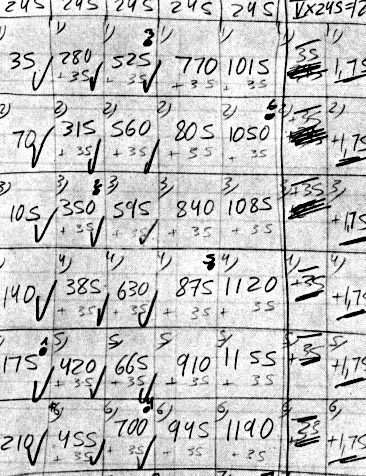 245 245 245 245 245 V x 245 = 12
1) 1) 1) 1) 1)
35 280 525 770 1015 35 1,75
+35 +35 +35 +35
2) 2) 2) 2) 2) 2)
70 315 560 805 1050 +35 +1,75
+35 +35 +35 +35
3) 3) 3) 3) 3) 3) 3)
105 350 595 840 1085 +35 +1,75
+35 +35 +35 +35
4) 4) 4) 4) 4) 4)
140 385 630 875 1120 +35 +1,75
+35 +35 +35 +35
5) 5) 5) 5) 5) 5)
175 420 665 910 1155 +35 +1,75
+35 +35 +35 +35
6) 6) 6) 6) 6) 6)
210 455 700 945 1190 +35 +1,75
+35 +35 +35 +35